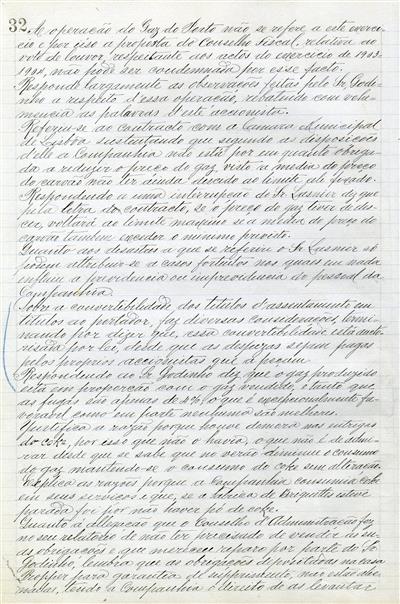 32. A operação do Gaz do Porto não se refere a este exerci-
cio e por isso a proposta do Conselho Fiscal, relativa ao
voto de louvor, respeitante aos actos do exercicio de 1903-
1904, não pode ser condemnada por esse facto.
Responde largamente ás observações feitas pelo Sr. Godi-
nho a respeito d'essa operação, rebatendo com vehe-
mencia as palavras d'este accionista.
Refere-se ao contracto com a Camara Municipal
de Lisboa sustentando que segundo as disposições
d'elle a Companhia não está por em quanto obriga-
da a reduzir o preço do gaz, visto a media do preço
do carvão não ter ainda descido ao limite alli fixado.
Respondendo a uma interrupção do Sr. Lasmier diz que
pela letra do contracto, se o preço do gaz tiver de des-
cer, voltará ao limite maximo se a media do preço do
carvão tambem exceder o mesmo previsto.
Quanto aos desastres a que se referiu o Sr. Lasmier só
podem attribuir-se a casos fortuitos nos quaes em nada
influe a previdencia ou imprevidencia do pessoal da
Companhia.
Sobre a convertibilidade dos titulos d'assentamento em
titulos ao portador, faz diversas considerações, termi-
nando por dizer que, essa convertibilidade está aucto-
risada por lei, desde que as despezas sejam pagas
pelos proprios accionistas que a peçam.
Respondendo ao Sr. Godinho diz que o gaz produzido
está em proporção com o gaz vendido, e tanto que
as fugas são apenas de 8%, o que é excepcionalmente fa-
voravel como em parte nenhuma são melhores.
Justifica a razão porque houve demora nas entregas
do coke, por isso que não o havia, o que não é de admi-
rar desde que se sabe que no verão diminue o consumo
do gaz mantendo-se o consumo do coke sem alteração.
Explica as razões porque a Companhia consumiu coke
em seus serviços e que, se a fabrica de Briquettes esteve
parada foi por não haver pó de coke.
Quanto á allegação que o Conselho d'Administração fez
no seu relatorio de não ter precisado de vender as su-
as obrigações e que mereceu reparo por parte do Sr.
Godinho, lembra que as obrigações depositadas na casa
Propper para garantia de supprimento, não estão alie-
nadas, tendo a Companhia o direito de as levantar